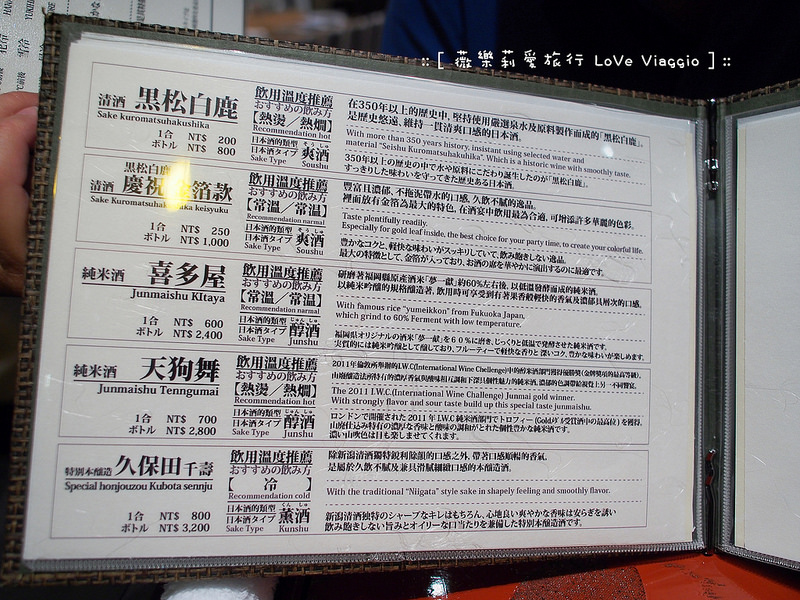 ::[ 薇樂莉愛旅行 LoVe Viaggio ]::
清酒 黒松白鹿
Sake kuromatsuhakushika
1合 NT$ 200
ボトル NT$ 800
飲用溫度推薦
おすすめの飲み方
【熱燙／熱燗】
Recommendation hot
日本酒的類型 そうしゅ
日本酒タイプ 爽酒
Sake Type Soushu
在350年以上的歷史中,堅持使用嚴選泉水及原料製作而成的「黒松白鹿」,
是歷史悠遠、維持一貫清爽口感的日本酒。
With more than 350 years history, insistant using selected water and
material "Seishu Kuromatsuhakuhika". Which is a historic wine with smoothly taste.
350年以上の歴史の中で水や原料にこだわり誕生したのが「黒松白鹿」。
すっきりした味わいを守ってきた歴史ある日本酒。
黒松白鹿
清酒 慶祝金箔款
keisyuku
1合 NT$ 250
ボトル NT$ 1,000
飲用溫度推薦
おすすめの飲み方
【常溫／常温】
Recommendation narmal
日本酒的類型 そうしゅ
日本酒タイプ 爽酒
Sake Type Soushu
豐富且濃郁、不拖泥帶水的口感,久飲不膩的逸品。
裡面放有金箔為最大的特色,在酒宴中飲用最為合適,可增添許多華麗的色彩。
Taste plentifully readily.
Especially for gold leaf inside, the best choice for your party time, to create your colorful life.
豊かなコクと、軽快な味わいがスッキリしていて、飲み飽きしない逸品。
最大の特徴として、金箔が入っており、お酒の席を華やかに演出するのに最適です。
純米酒 喜多屋
Junmaishu KItaya
1合 NT$ 600
ボトル NT$ 2,400
飲用溫度推薦
おすすめの飲み方
【常溫／常温】
Recommendation narmal
日本酒的類型 じゅんしゅ
日本酒タイプ 醇酒
Sake Type Junshu
研磨著福岡縣原產酒米「夢一獻」約60%左右後,以低溫發酵而成的純米酒。
以純米吟釀的規格釀造著,飲用時可享受到有著果香般輕快的香氣及濃郁具層次的口感。
With famous rice "yumeikkon" from Fukuoka Japan,
which grind to 60% Ferment with low temperature.
福岡県オリジナルの酒米「夢一献」を60%に磨き、じっくりと低温で発酵させた純米酒です。
実質的には純米吟醸として醸しており、フルーティーで軽快な香りと深いコク、豊かな味わいが楽しめます。
純米酒 天狗舞
Junmaishu Tenngumai
1合 NT$ 700
ボトル NT$ 2,800
飲用溫度推薦
おすすめの飲み方
【熱燙／熱燗】
Recommendation hot
日本酒的類型 じゅんしゅ
日本酒タイプ 醇酒
Sake Type Junshu
2011年倫敦所舉辦的I.W.C(International Wine Chellenge)中的醇米酒部門獲得優勝獎(金牌獎項的最高等級)。
山廢釀造法所持有的濃厚香氣與酸味相互調和下深具個性魅力的純米酒,濃郁的色調帶給視覺上另一不同饗宴。
The 2011 I.W.C.(International Wine Challenge) Junmai gold winner.
With strongly flavor and sour taste build up this special taste junmaishu.
ロンドンで開催された 2011 年 I.W.C 純米酒部門でトロフィー (Goldメダル受賞酒中の最高位) を獲得。
山廃仕込み特有の濃厚な香味と酸味の調和がとれた個性豊かな純米酒です。
濃い山吹色は目も楽しませてくれます。
特別本醸造 久保田千壽
Special honjouzou Kubota sennju
1合 NT$ 800
ボトル NT$ 3,200
飲用溫度推薦
おすすめの飲み方
【 冷 】
Recommendation cold
日本酒的類型 くんしゅ
日本酒タイプ 薫酒
Sake Type Kunshu
除新潟清酒獨特銳利除韻的口感之外,帶著口感順暢的香氣。
是屬於久飲不膩及兼具滑膩細緻口感的本釀造酒。
With the traditional "Niigata" style sake in shapely feeling and smoothly flavor.
新潟清酒独特のシャープなキレはもちろん、心地良い爽やかな香味は安らぎを誘い
飲み飽きしない旨みとオイリーな口当たりを兼備した特別本醸造酒です。